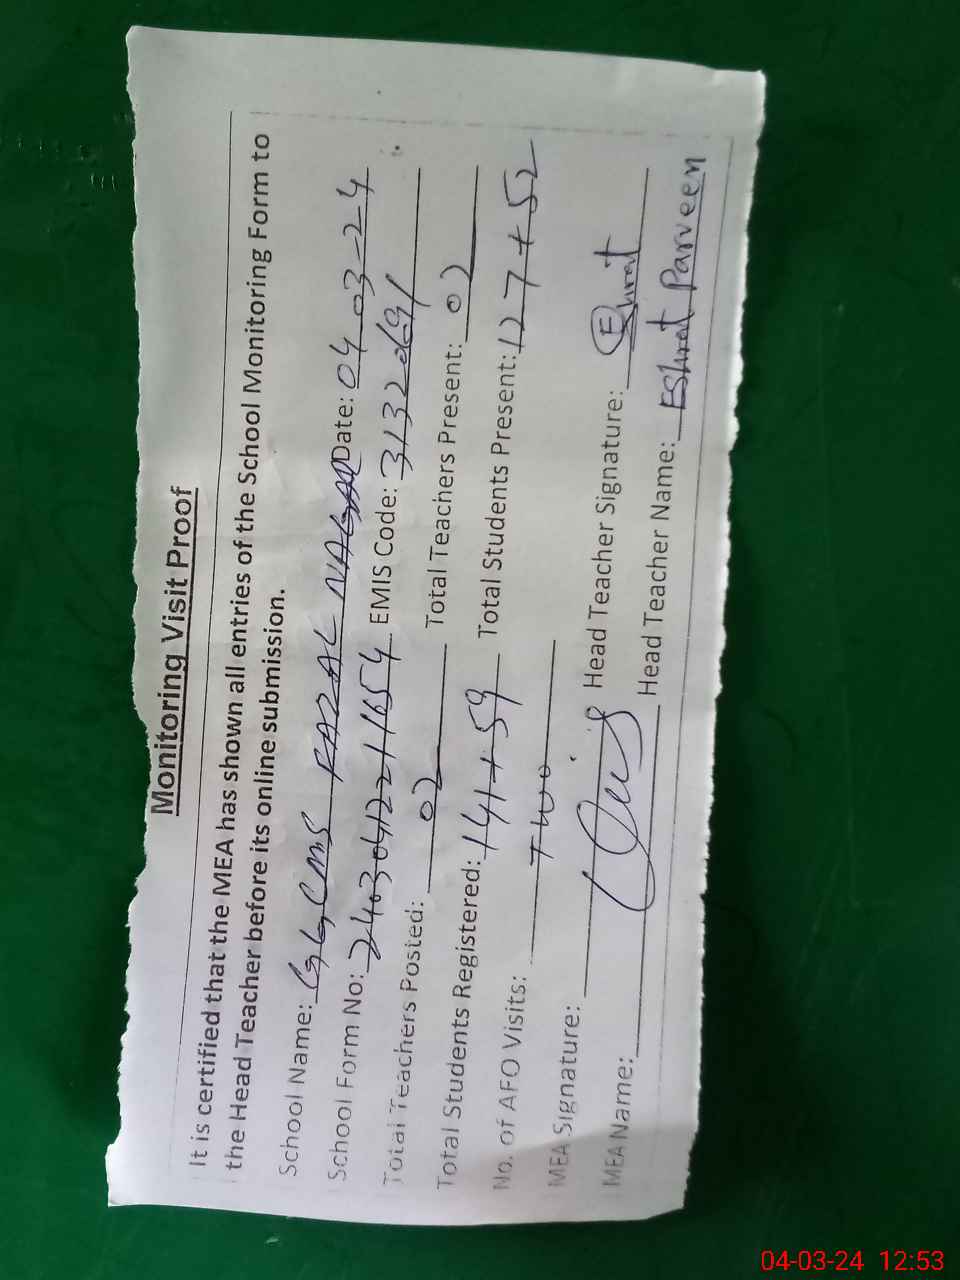 Monitoring Visit Proof
It is certified that the MEA has shown all entries of the School Monitoring Form to
the Head Teacher before its online submission.
School Name: GGCMS FAZAL NAGAR Date: 04-03-24
School Form No: 24030412211654 EMIS Code: 31320691
Total Teachers Posted: 02 Total Teachers Present: 02
Total Students Registered: 141+59 Total Students Present: 127+52
No. of AFO Visits: Two
MEA Signature: Head Teacher Signature: Eshrat
MEA Name: Head Teacher Name: Eshrat Parveen
04-03-24 12:53